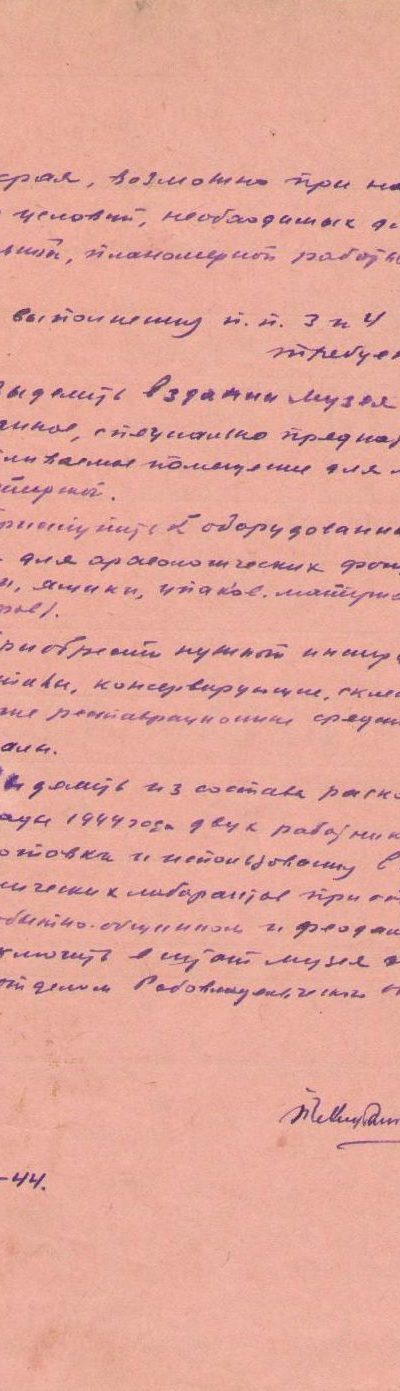 края, возможно при на
условий, необходимых д
ьной, планомерной работы
выполнения п.п. 3 и 4
требуе
Выделить в здании музея
анное, специально предна
ливаемое помещение для
терской.
Приступить к оборудовани
для археологических фон
и, ящики, упаков. матери
ров).
Приобрести нужный инстр
ставы, консервирующие, скле
же реставрационные средст
алы.
Выделить из состава раско
1944 года двух работник
отовки и использования в
нических лаборантов при от
бытно-общинном и феодал
ключить в штат музея
отделом Рабовладельческого об
-44.